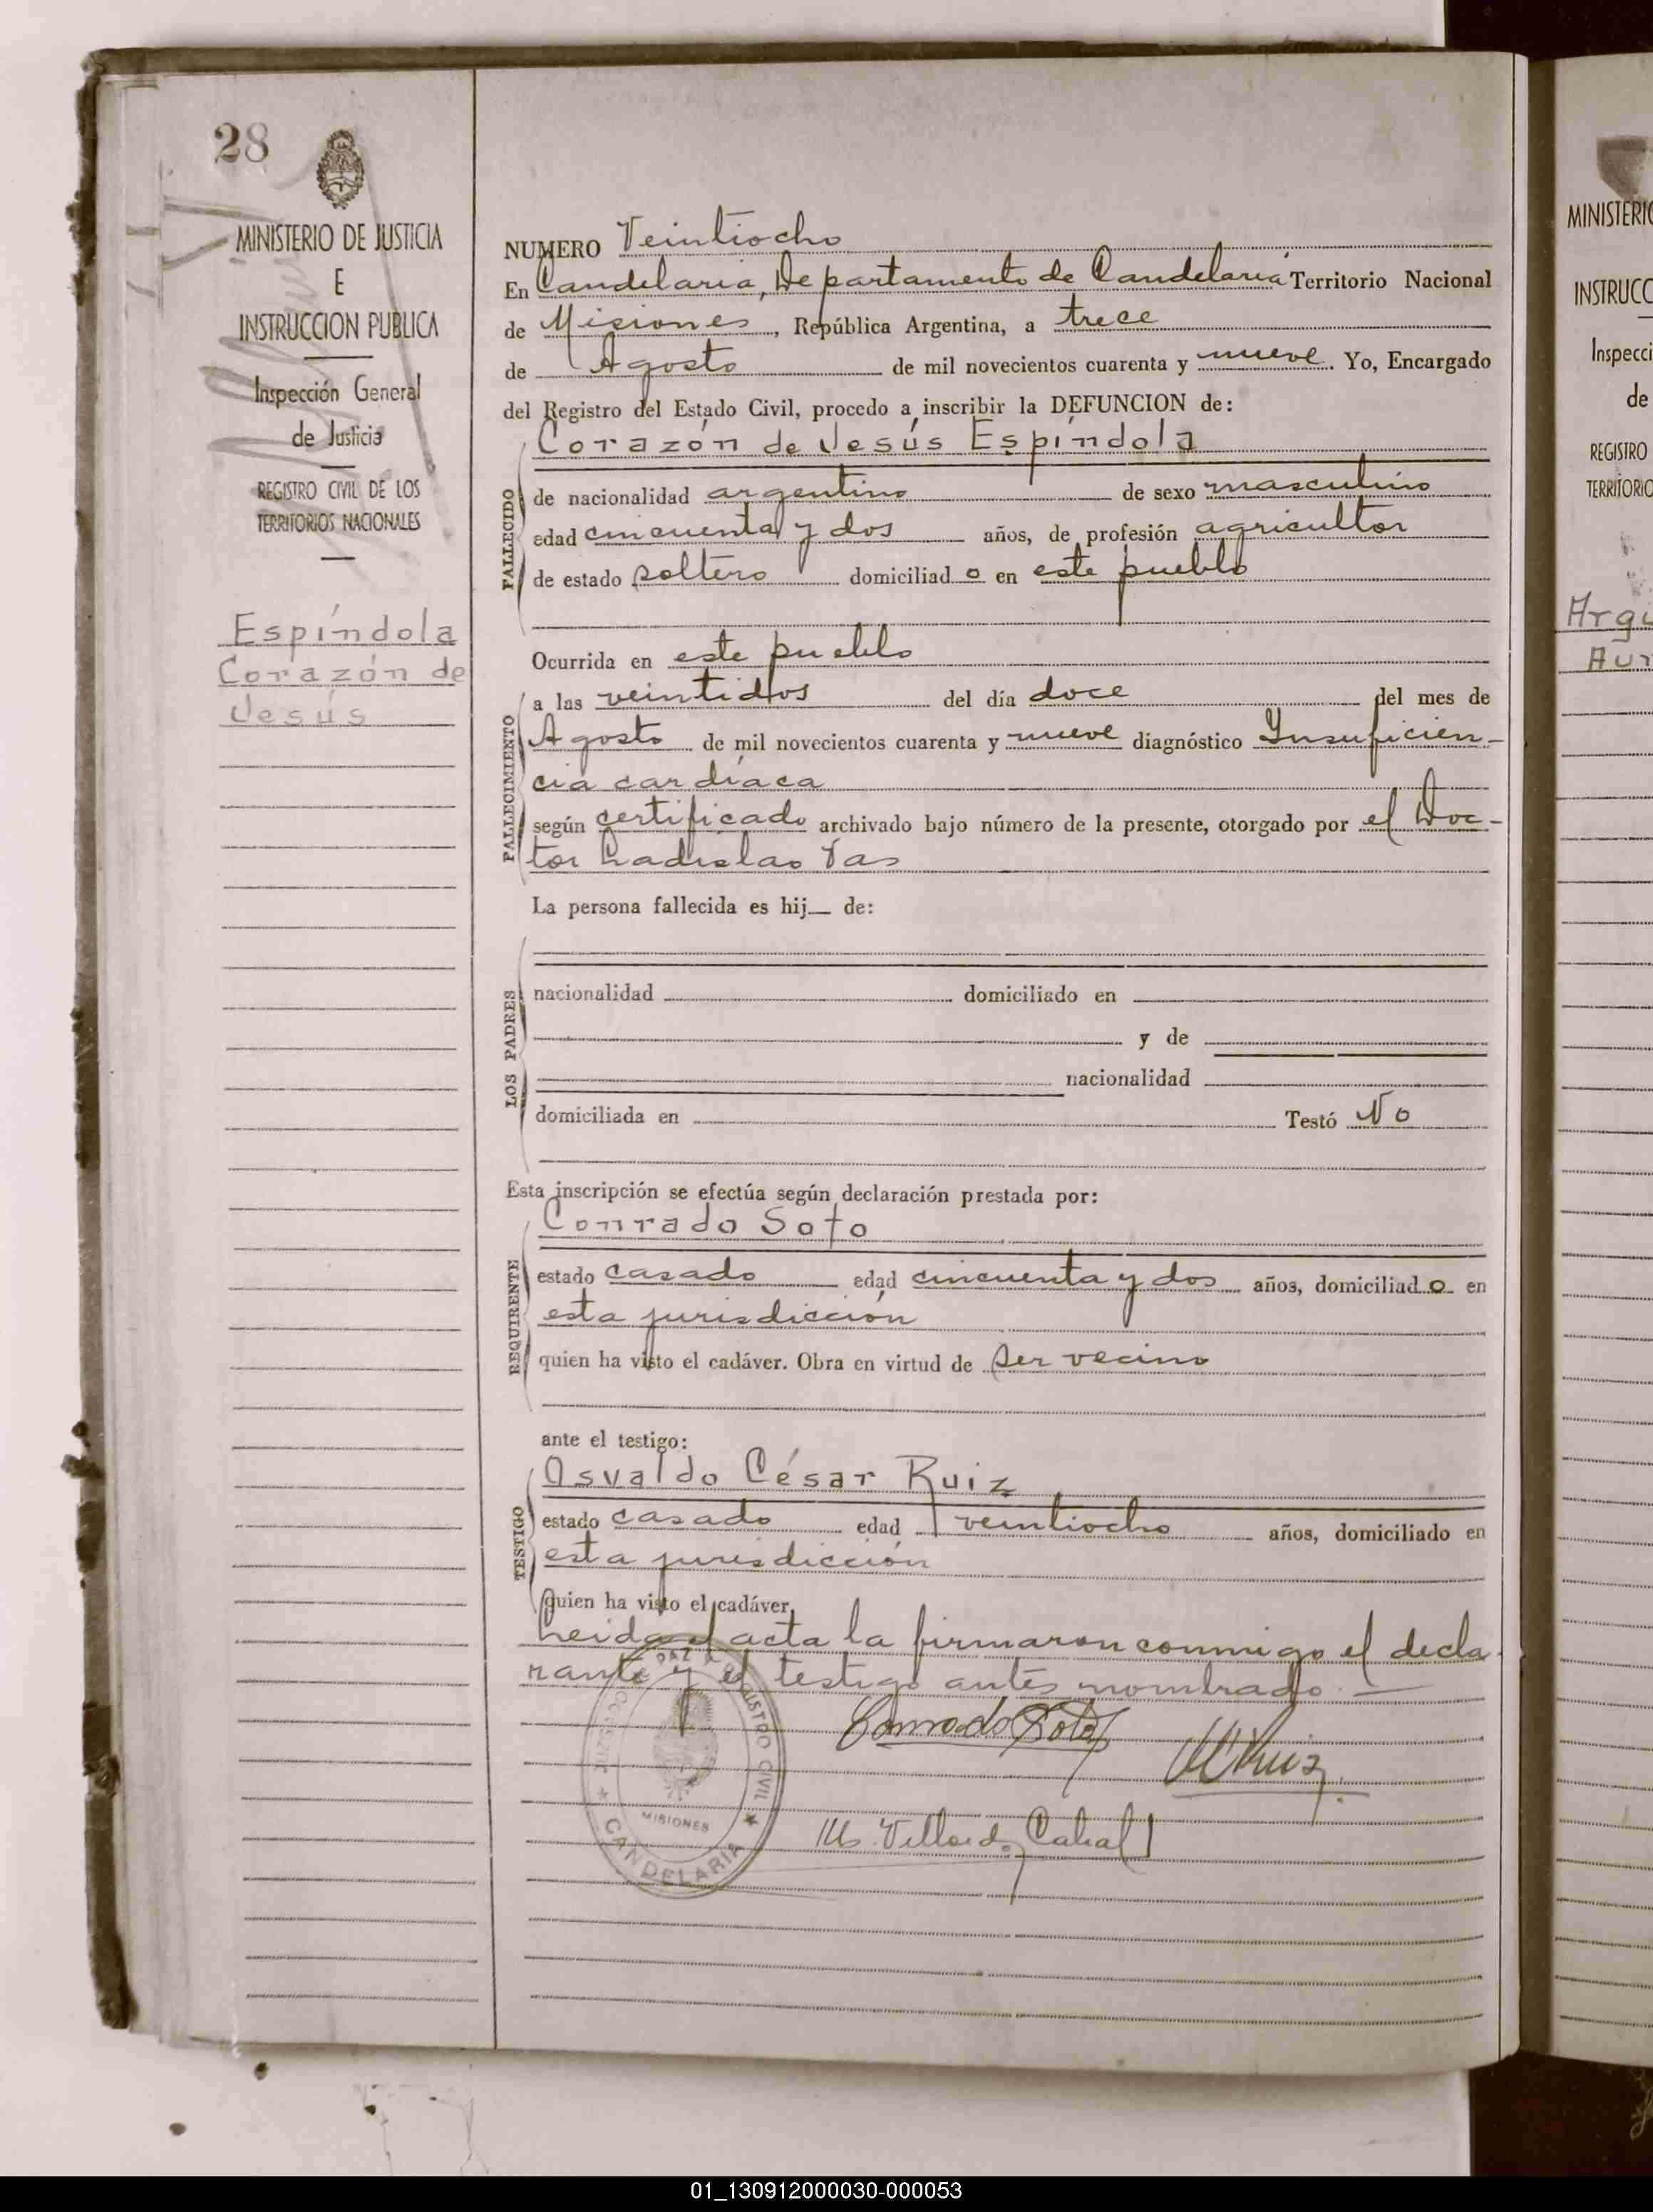 28
MINISTERIO DE JUSTICIA
E
INSTRUCCION PUBLICA
Inspección General
de Justicia
REGISTRO CIVIL DE LOS
TERRITORIOS NACIONALES
Espíndola
Corazón de
Jesús
NUMERO Veintiocho
En Candelaria, Departamento de Candelaria Territorio Nacional
de Misiones, República Argentina, a trece
de Agosto de mil novecientos cuarenta y nueve. Yo, Encargado
del Registro del Estado Civil, procedo a inscribir la DEFUNCION de:
Corazón de Jesús Espíndola
FALLECIDO
de nacionalidad argentino de sexo masculino
edad cincuenta y dos años, de profesión agricultor
de estado soltero domiciliad o en este pueblo
Ocurrida en este pueblo
FALLECIMIENTO
a las veintidos del día doce del mes de
Agosto de mil novecientos cuarenta y nueve diagnóstico Insuficien-
cia cardíaca
según certificado archivado bajo número de la presente, otorgado por el Doc-
tor Ladislao
La persona fallecida es hij de:
LOS PADRES
nacionalidad domiciliado en
y de
nacionalidad
domiciliada en Testó No
Esta inscripción se efectúa según declaración prestada por:
Conrado Soto
REQUIRENTE
estado casado edad cincuenta y dos años, domiciliad o en
esta jurisdicción
quien ha visto el cadáver. Obra en virtud de ser vecino
ante el testigo:
Osvaldo César Ruiz
TESTIGO
estado casado edad veintiocho años, domiciliado en
esta jurisdicción
quien ha visto el cadáver
Leida el acta la firmaron conmigo el decla-
rante y el testigo antes nombrado.—
Conrado Soto
Ruiz
Cabal
PAZ REGISTRO CIVIL
MISIONES
CANDELARIA
MINISTERIO
INSTRUCC
Inspecci
de
REGISTRO
TERRITORIO
01_130912000030-000053